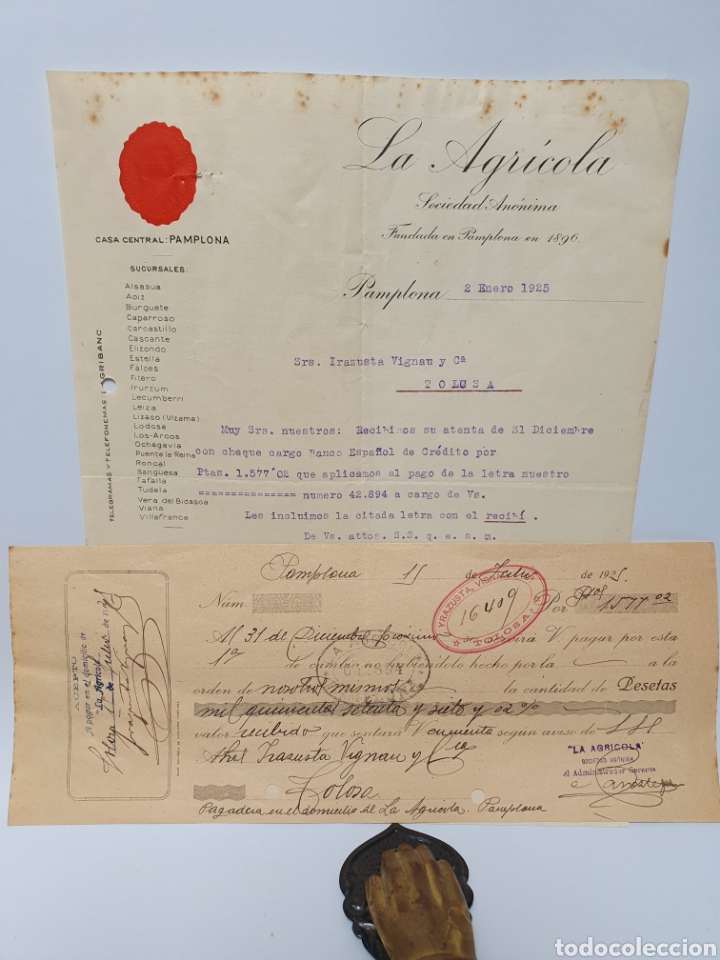 La Agrícola
Sociedad Anónima
Fundada en Pamplona en 1896.
CASA CENTRAL: PAMPLONA
SUCURSALES:
Alsasua
Aoiz
Burguete
Caparroso
Carcastillo
Cascante
Elizondo
Estella
Falces
Fitero
Irurzun
Lecumberri
Leiza
Lizaso (Ulzama)
Lodosa
Los-Arcos
Ochagavia
Puente la Reina
Roncal
Sangüesa
Tafalla
Tudela
Vera del Bidasoa
Viana
Villafranca
TELEGRAMAS Y TELEFONEMAS: AGRIBANC
Pamplona 2 Enero 1925
Srs. Irazusta Vignau y Cª
TOLUSA
Muy Srs. nuestros: Recibimos su atenta de 31 Diciembre
con cheque cargo Banco Español de Crédito por
Ptas. 1.577´02 que aplicamos al pago de la letra nuestro
=============== numero 42.894 a cargo de Vs.
Les incluimos la citada letra con el recibí.
De Vs. attos. S.S. q. e. s. m.
Pamplona 15 de Julio de 1925
Núm. Por Ptas 1577 02
YRAZUSTA, VIGNAU
16409
TOLOSA
Al 31 de Diciembre próximo se servirá V pagar por esta
1ª de cambio no habiéndolo hecho por la — a la
orden de nosotros mismos la cantidad de Pesetas
mil quinientas setenta y siete y 02 %
valor recibido que sentará V en cuenta según aviso de
A los Irazusta Vignau y Cª
Tolosa
Pagadera en el domicilio de La Agrícola. Pamplona
"LA AGRICOLA"
SOCIEDAD ANÓNIMA
el Administrador Gerente
ACEPTO
A pagar en el domicilio de
"La Agrícola"
Tolosa de Julio de 1925
Irazusta Vignau y Cª
todocoleccion